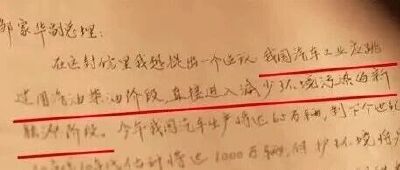 邹家华副总理:
在这封信里我想提出一个建议 我国汽车工业应跳
过用汽油柴油阶段,直接进入减少环境污染的新
能源阶段。今年我国汽车生产将达60万辆,到下个世纪
10年估计将达1000万辆,保护环境将